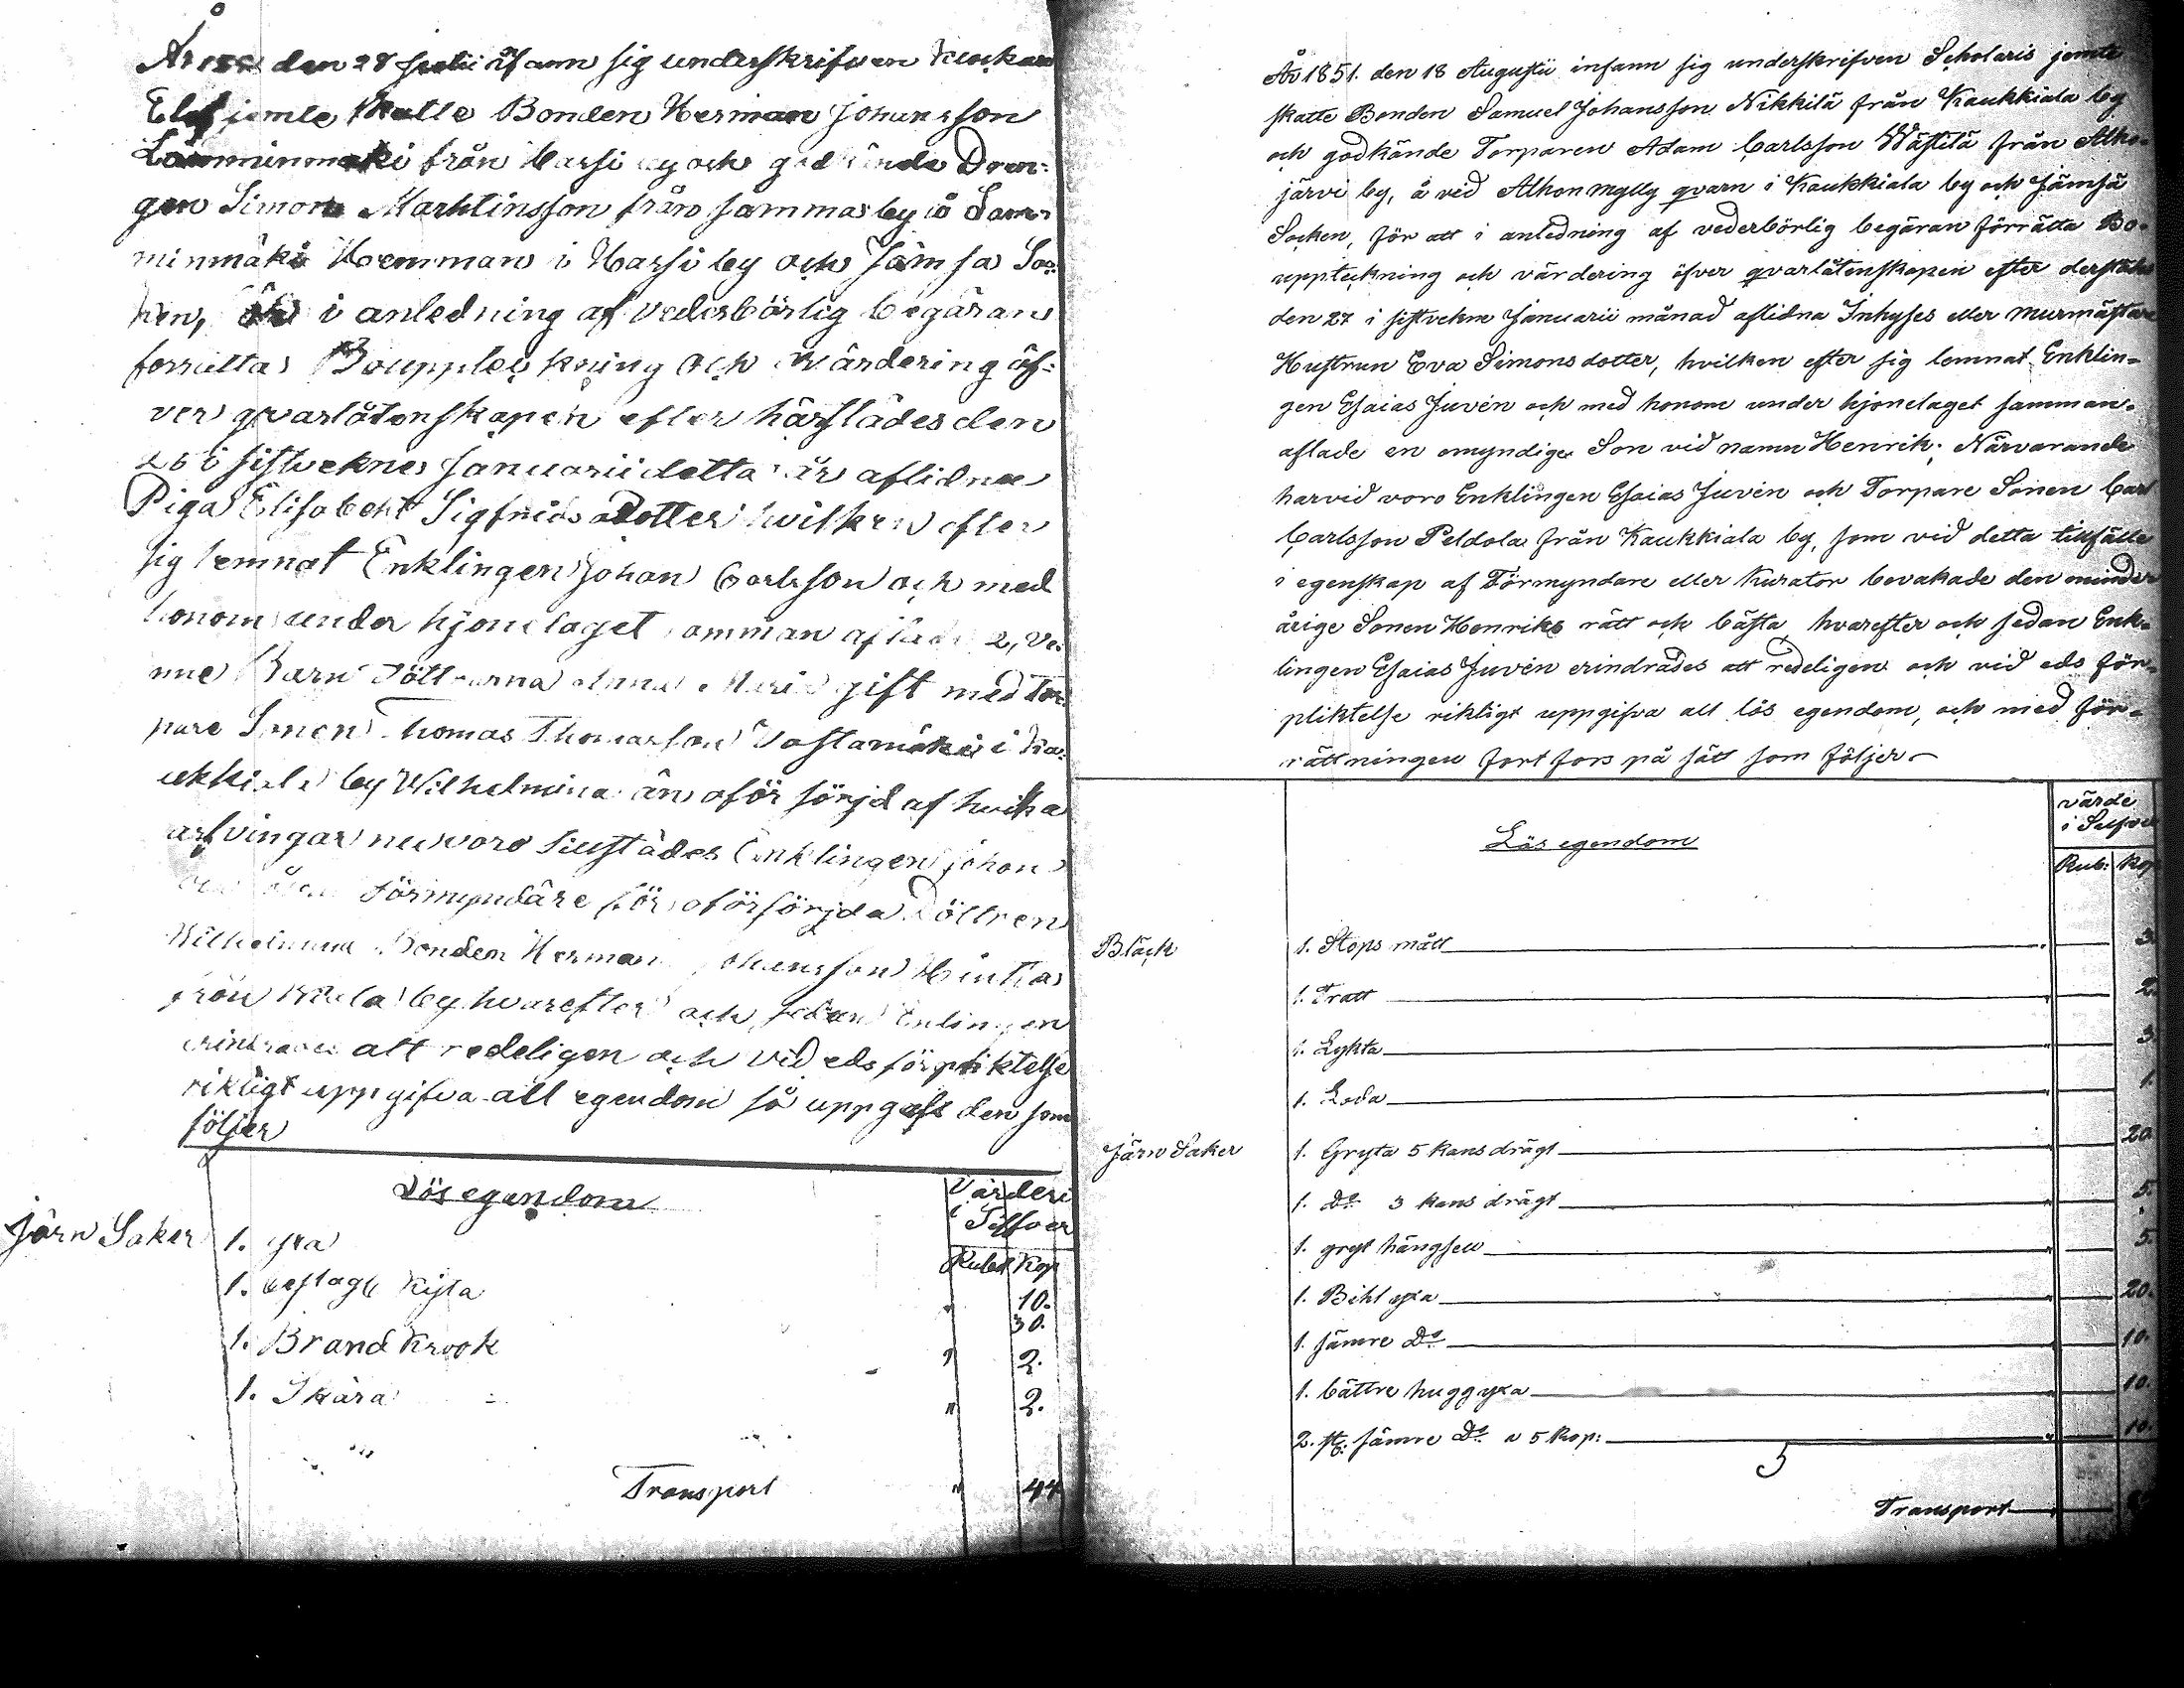 År den 28 Julii infann sig underskrifven Klockare
Elef jemte Skatte Bonden Herman Johansson
Lamminmäki från Harsi by och godkände Dren-
gen Simon Marttinsson från samma by å Lam-
minmäki Hemman i Harsi by och Jämsa Soc-
ken, i anledning af vederbörlig begäran
forrätta Bouppteckning och värdering öf-
ver qvarlåtenskapen efter härstädes den
25 i sistvekne Januarii detta år aflidne
Piga Elisabeht Sigfrids Dotter hvilken efter
sig lemnat Enklingen Johan Carlsson och med
honom under hjonelaget samman aflade 2,
Barn Döttrarna Anna Maria gift med Tor-
pare Sonen Thomas Thomasson Vastamäki i Ka-
ukkiala by Wilhelmina än oförsörjd af hvilka
arfvingar nu voro Enklingen Johan
Förmyndare för oförsörjda Döttren
Wilhelmina Bonden Herman Johansson
från by hvarefter och sedan Enlingen
erindrades att redeligen och vid eds förpliktelse
riktigt uppgifva all egendom så uppgafs den som
följer
Lös egendom
Värde i
i Silfver
Rubel Kop
Järn Saker 1. yxa " 10.
1. beslagt Kista 30.
1. Brand Krook " 2.
1. Skära " 2.
Transport " 44
År 1851. den 18 Augustii infann sig underskrifven Scholaris jemte
skatte Bonden Samuel Johansson Nikkilä från Kaukkiala by
och godkände Torparen Adam Carlsson Wästilä från Alho-
järvi by, å vid Alhonmylly qvarn i Kaukkiala by och Jämsä
Socken, för att i anledning af vederbörlig begäran förrätta Bo-
uppteckning och värdering öfver qvarlåtenskapen efter derstädes
den 27 i sistvekne Januarii månad aflidna Inhyses eller Murmästare
Hustrun Eva Simonsdotter, hvilken efter sig lemnat Enklin-
gen Esaias Juvén och med honom under hjonelaget samman-
aflade en omyndige Son vid namn Henrik; Närvarande
harvid voro Enklingen Esaias Juvén och Torpare Sonen Carl
Carlsson Peldola från Kaukkiala by, som vid detta tillfälle
i egenskap af Förmyndare eller Kurator bevakade den minder
årige Sonen Henriks rätt och bästa, hvarefter och sedan Enk-
lingen Esaias Juvén erindrades att redeligen och vid eds för-
pliktelse riktigt uppgifva all lös egendom, och med för-
rättningen fortfors på sätt som följer.
Lös egendom
värde
i Silfver
Rub: Kop
Bläck 1. Stops mått " 3.
1. Tratt " 2.
1. Lykta " 3.
1. Loda " 1.
Järn Saker 1. Gryta 5 kans drägt " 20.
1. Do 3 kans drägt " 5.
1. gryt hängsell " 5.
1. Bihl yxa " 20.
1. sämre Do " 10.
1. bättre huggyxa " 10.
2. st: sämre Do a 5 Kop: " 10.
Transport